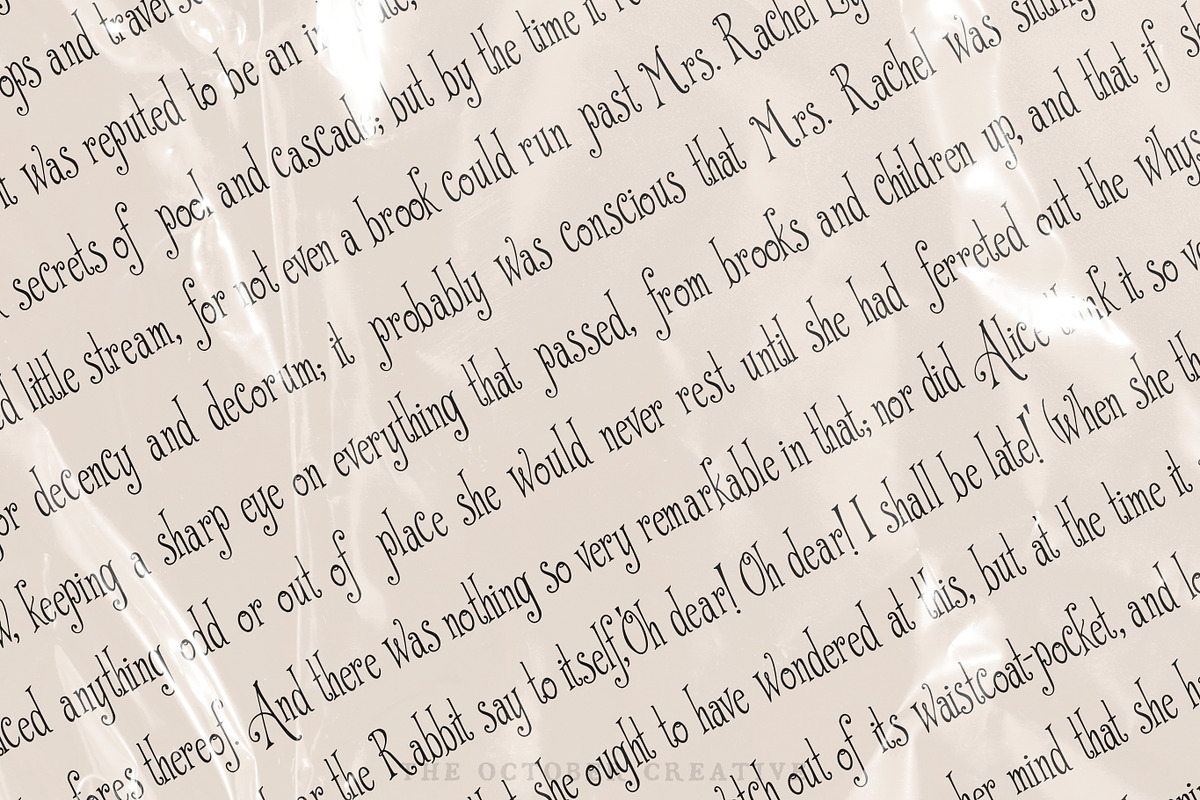 ops and
t was reputed to be an
secrets of pool and cascade; but by the time it
d little stream, for not even a brook could run past Mrs. Rachel
or decency and decorum; it probably was conscious that Mrs. Rachel was sitting
keeping a sharp eye on everything that passed, from brooks and children up, and that if
ced anything odd or out of place she would never rest until she had ferreted out the whys
fores thereof. And there was nothing so very remarkable in that; nor did Alice think it so
the Rabbit say to itself, 'Oh dear! Oh dear! I shall be late!' (when she
she ought to have wondered at this, but at the time it
out of its waistcoat-pocket, and
her mind that she
THE OCTOBER CREATIVE